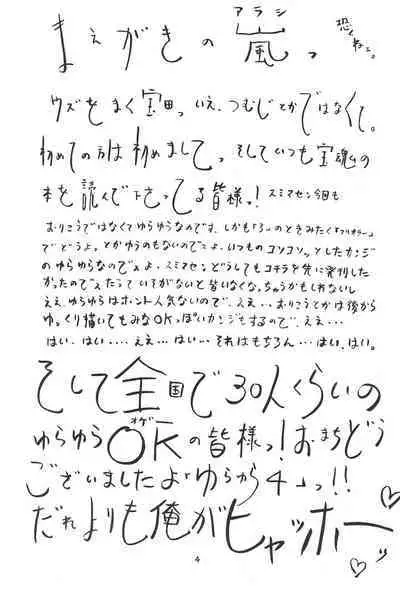 まえがきの嵐っ
アラシ
恐くねェ。
ウズをまく宝田っ いえ、つむじとかではなくて。
初めての方は初めまして。そしていつも宝魂の
本を読んで下さってる皆様っ！スミマセン今回も
おりこうではなくてゆらゆらなのです。しかも「3」のときみたく「マリオラー」
でどうよ。とかゆうのもないのでこよ、いつものコソコソっとしたカンジ
のゆらゆらなのでェよ、スミマセンどうしてもコチラを先に発刊した
かったのでェだって いそがないと皆いなくなっちゃうかもしれないし
ええ、ゆらゆらはホント人気ないので、ええ…おりこうとかは後から
ゆっくり描いてもみなOKっぽいカンジもするので、ええ…
はい、はい‥‥ええ…はい…それはもちろん…はい、はい。
そして全国で30人くらいの
ゆらゆらOKの皆様っ！おまちどう
ございましたよ「ゆらから4」っ!!
だれよりも俺がヒャッホー
4